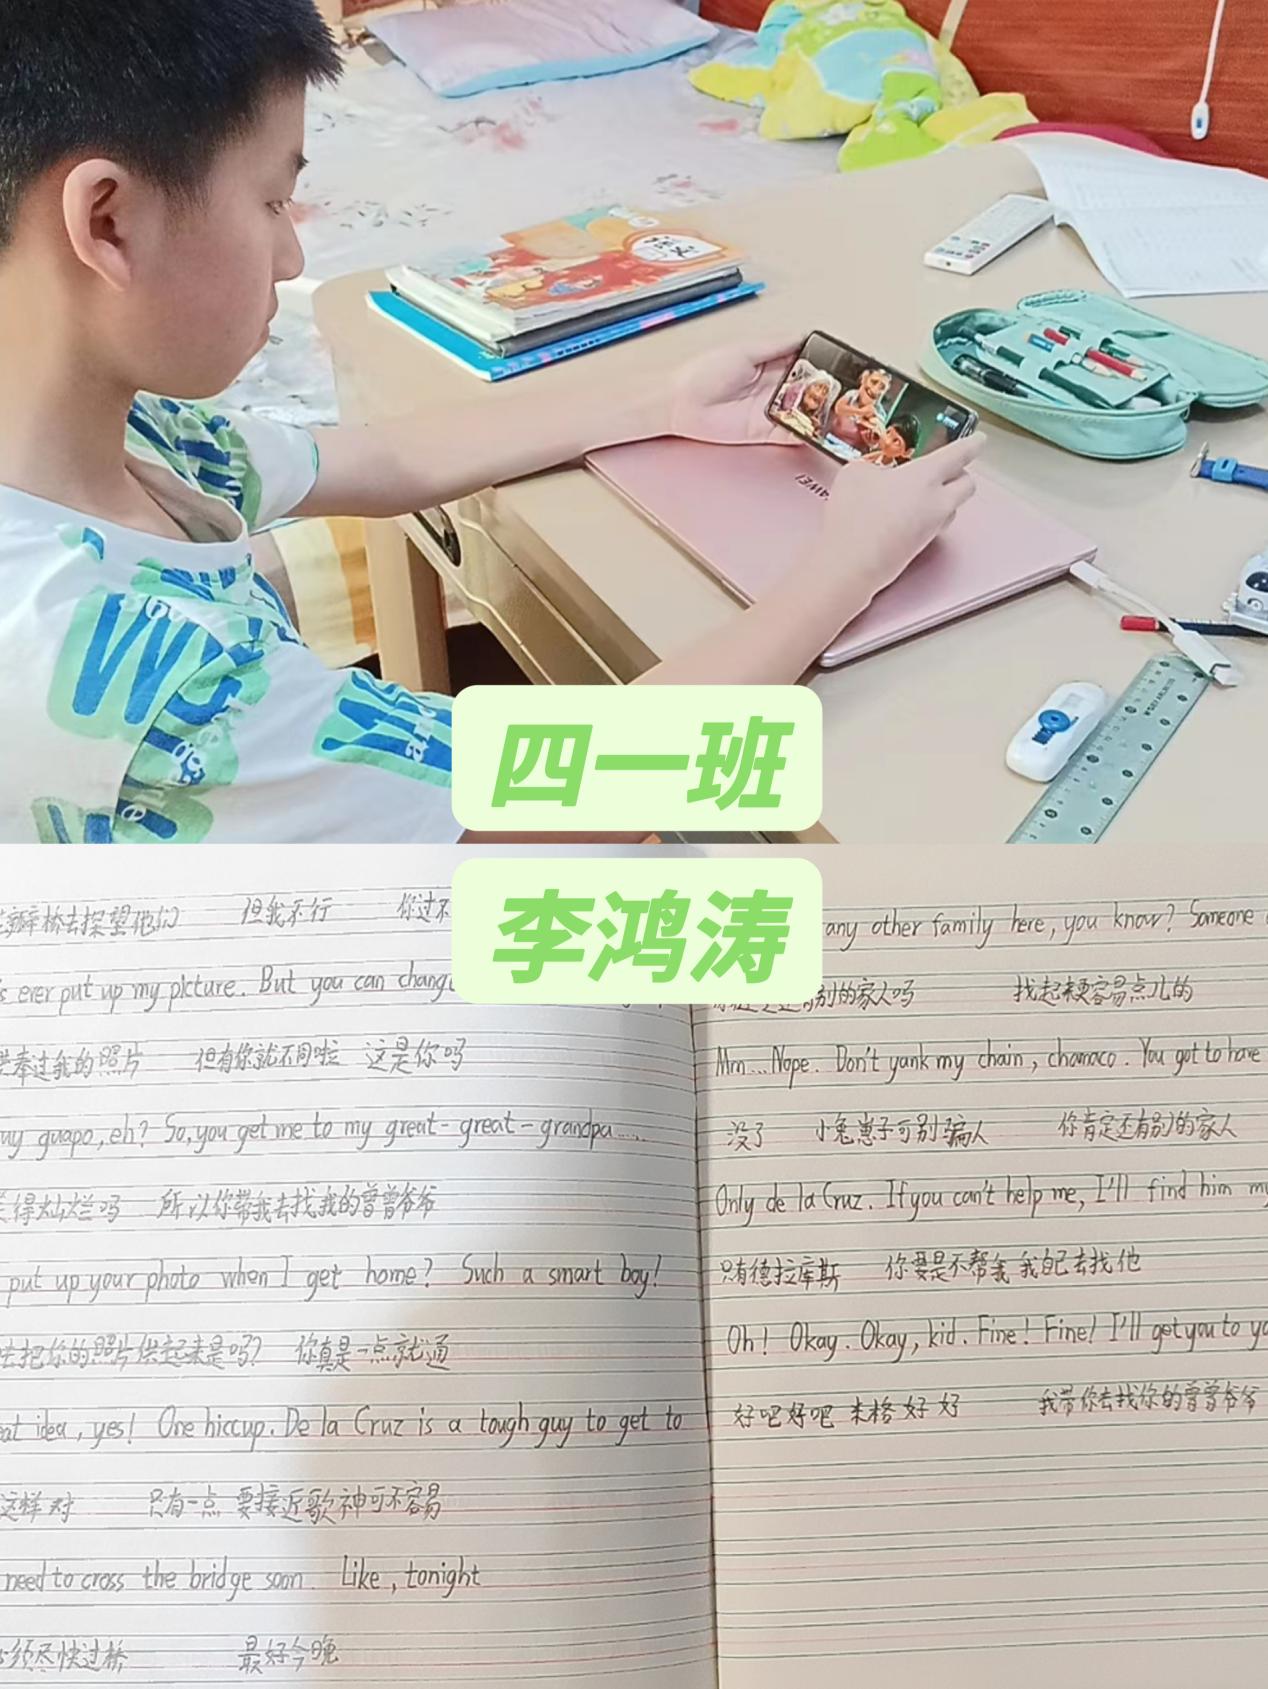 语文
HUAWEI
四一班
李鸿涛
瓣桥去探望他们 但我不行 你过不
s ever put up my picture. But you can change
供奉过我的照片 但有你就不同啦 这是你吗
uy guapo, eh? So, you get me to my great-great-grandpa.....
得灿烂吗 所以你带我去找我的曾曾爷爷
put up your photo when I get home? Such a smart boy!
去把你的照片供起来是吗? 你真是一点就通
eat idea, yes! One hiccup. De la Cruz is a tough guy to get to
这样对 只有一点 要接近歌神可不容易
need to cross the bridge soon. Like, tonight
须尽快过桥 最好今晚
any other family here, you know? Someone
别的家人吗 找起来更容易点儿的
Mm...Nope. Don't yank my chain, chamaco. You got to have
没了 小兔崽子可别骗人 你肯定还有别的家人
Only de la Cruz. If you can't help me, I'll find him my
只有德拉库斯 你要是不帮我 我自己去找他
Oh! Okay. Okay, kid. Fine! Fine! I'll get you to yo
好吧好吧 来格 好 好 我带你去找你的曾曾爷爷